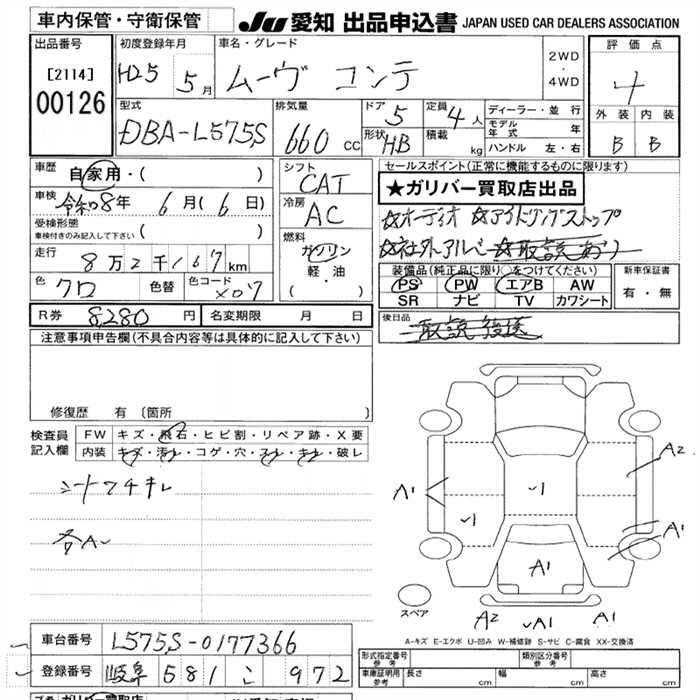 車内保管・守衛保管
JU 愛知 出品申込書 JAPAN USED CAR DEALERS ASSOCIATION
出品番号
[2114]
00126
初度登録年月
H25 5月
車名・グレード
ムーヴ コンテ
2WD
・
4WD
評価点
4
外装 内装
B B
型式
DBA-L575S
排気量
660 CC
ドア 5
形状 HB
定員 4人
積載 kg
ディーラー・並行
モデル年式 年
ハンドル 左・右
車歴
自家用・( )
車検
令和8年 6月(6日)
受検形態
車検付きのみ記入して下さい ( )
走行
8万2千167km
色 クロ 色替 色コード X07
シフト
CAT
冷房
AC
燃料
ガソリン
軽油
( ・ )
セールスポイント(正常に機能するものに限ります)
★ガリバー買取店出品
☆オーディオ ☆アイドリングストップ
☆社外アルミ ☆取説あり
装備品(純正品に限り○をつけてください)
PS PW エアB AW
SR ナビ TV カワシート
新車保証書
有・無
R券 8280円 名変期限 月 日
後日品
取説後送
注意事項申告欄(不具合内容等は具体的に記入して下さい)
修復歴 有 〔箇所 〕
検査員記入欄
FW キズ・飛石・ヒビ割・リペア跡・X要
内装 キズ・汚レ・コゲ・穴・スレ・キレ・破レ
シートマチキレ
各A
A2
A1
✓1
✓1
A1
A1
A2 ✓A1 A1
スペア
A-キズ E-エクボ U-凹み W-補修跡 S-サビ C-腐食 XX-交換済
車台番号 L575S-0177366
登録番号 岐阜 581 こ 972
型式指定番号 参考
類別区分番号 参考
車庫証明用 参考 長さ cm 幅 cm 高さ cm